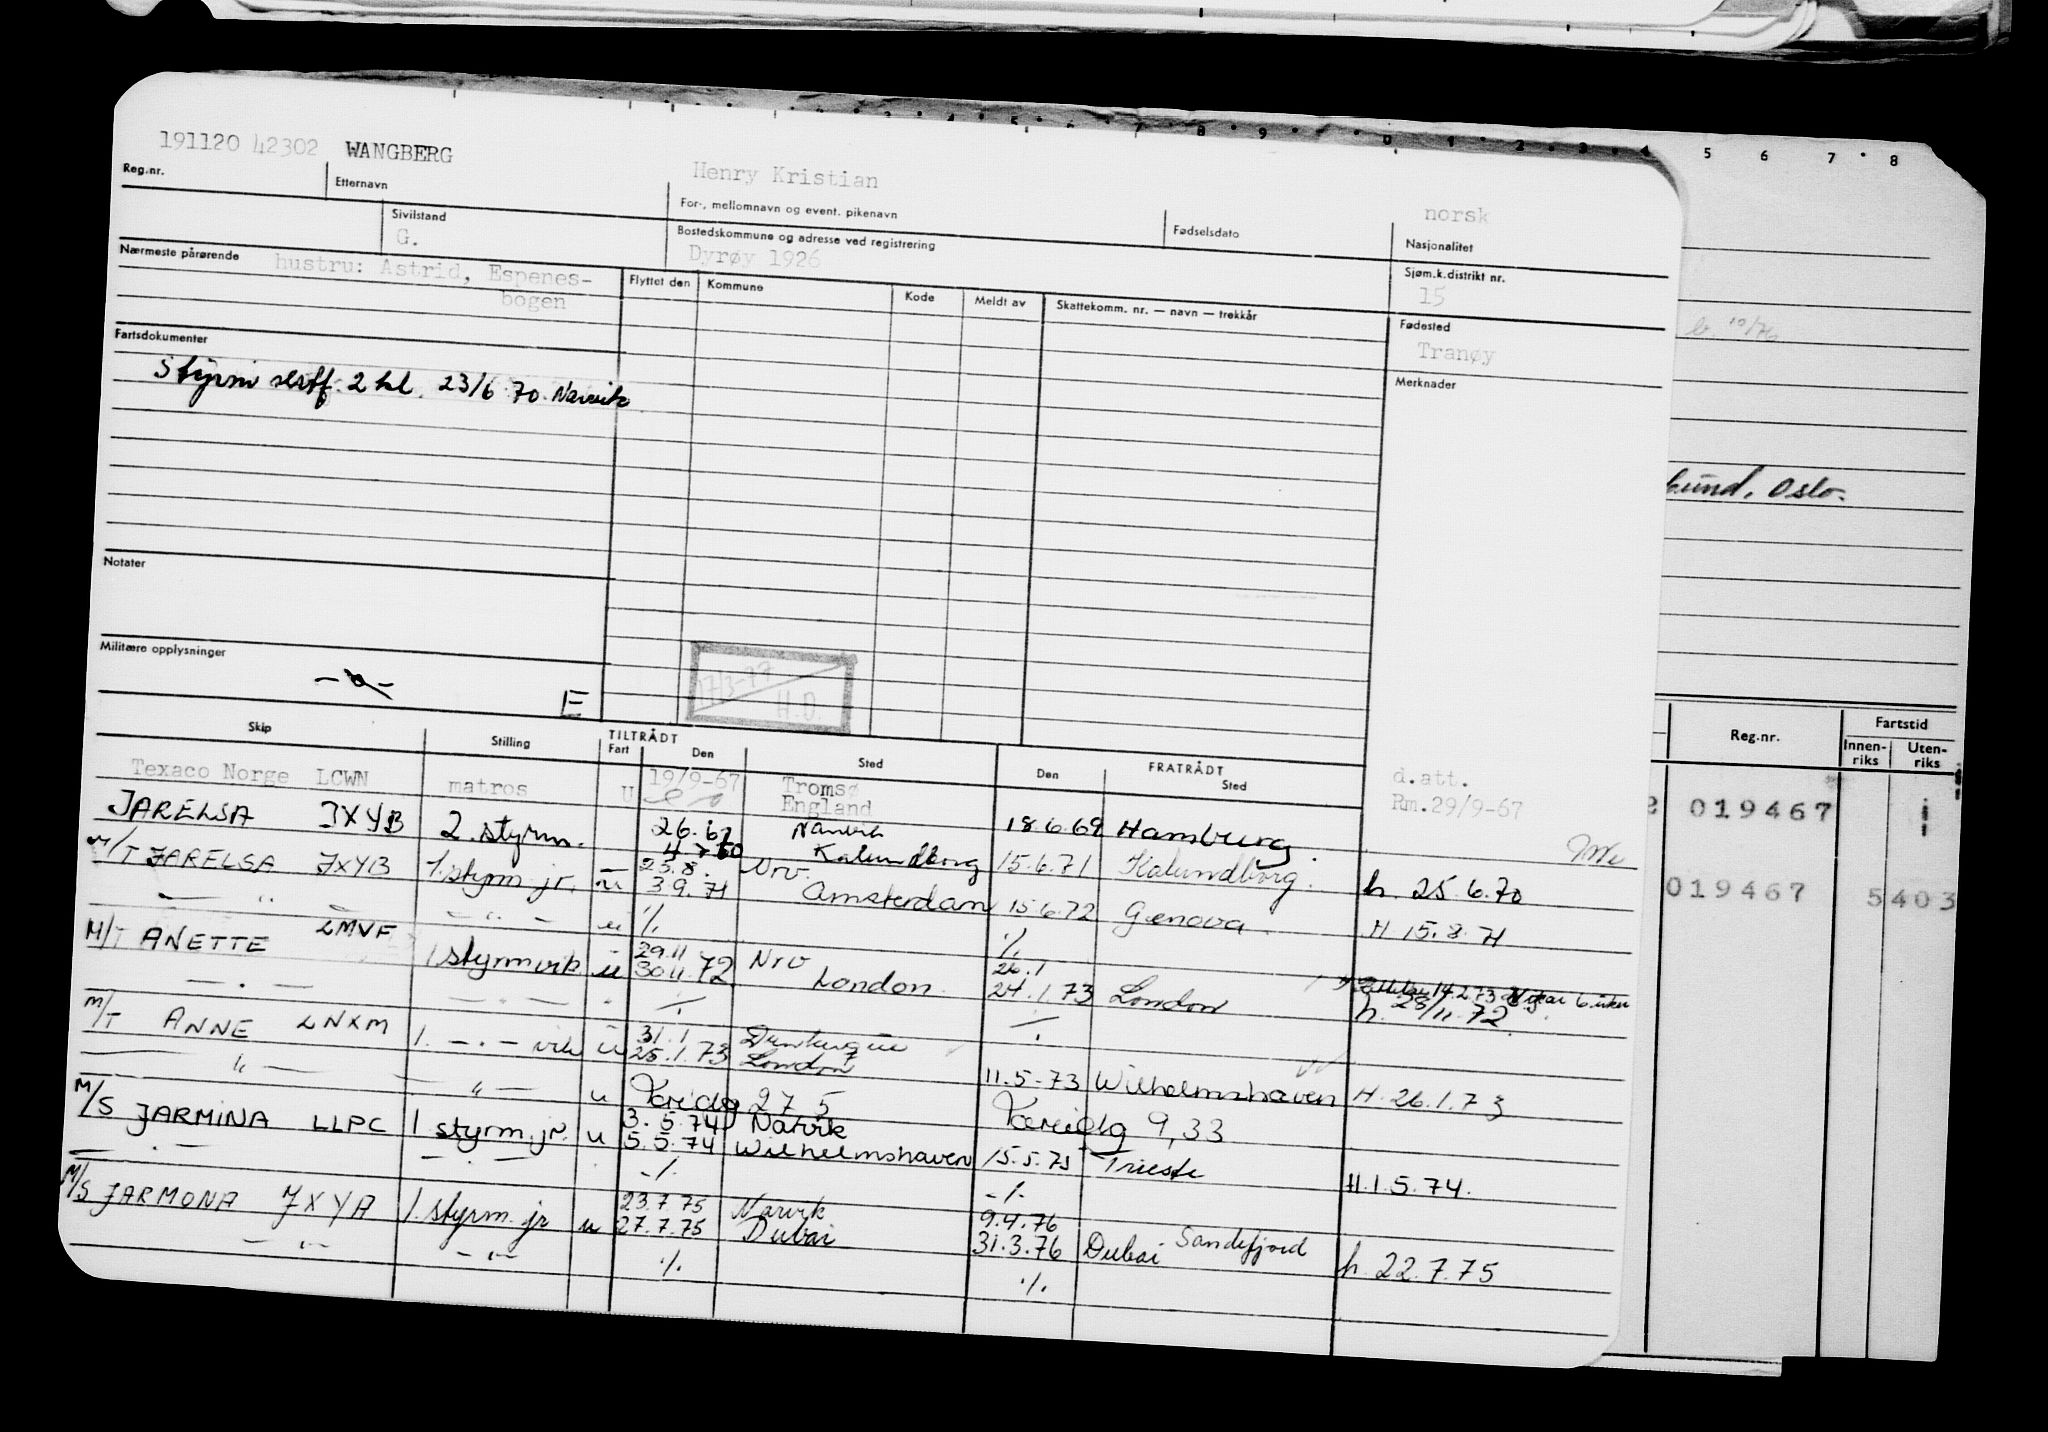 191120 42302 WANGBERG Henry Kristian norsk
Reg.nr. Etternavn For-, mellomnavn og event. pikenavn Fødselsdato Nasjonalitet
Sivilstand G. Bostedskommune og adresse ved registrering Dyrøy 1926 Sjøm.k.distrikt nr. 15
Nærmeste pårørende hustru: Astrid, Espenes-
bogen
Flyttet den Kommune Kode Meldt av Skattekomm. nr. — navn — trekkår
Fødested
Tranøy
Merknader
Fartsdokumenter
Styrm sertf. 2 kl. 23/6 70. Narvik
Notater
Militære opplysninger
E
17/3-77
H.O.
Skip Stilling TILTRÅDT Fart Den Sted FRATRÅDT Den Sted
Texaco Norge LCWN matros U 19/9-67 Tromsø
England
d.att.
Rm.29/9-67
JARELSA JXYB 2. styrm. Narvik 18.6.69 Hamburg.
M/T JARELSA JXYB 1. styrm. jr. u Kalundborg 15.6.71 Kalundborg. h. 25.6.70
— " — 23.8. Nrv.
3.9.71 Amsterdam 15.6.72 Genova. H 15.8.71
M/T ANETTE LMVF 1 styrm vik u 29.11 Nrv
30.11.72 London 26.1
24.1.73 London
h. 28/11.72
M/T ANNE LNXM 1. — " — vik u 31.1 Dunkerque
25.1.73 London 11.5.73 Wilhelmshaven H. 26.1.73
— " — u 275 9,33
M/S JARMINA LLPC 1 styrm. jr. u 3.5.74 Narvik
5.5.74 Wilhelmshaven 15.5.75 Trieste H. 1.5.74.
M/S JARMONA JXYA 1. styrm. jr u 23.7.75 Narvik 9.4.76 Sandefjord
27.7.75 Dubai 31.3.76 Dubai h. 22.7.75
— " — — " — ./. ./.
5 6 7 8
10/76
Oslo.
Reg.nr. Fartstid
Innen-
riks Uten-
riks
019467
019467 5403